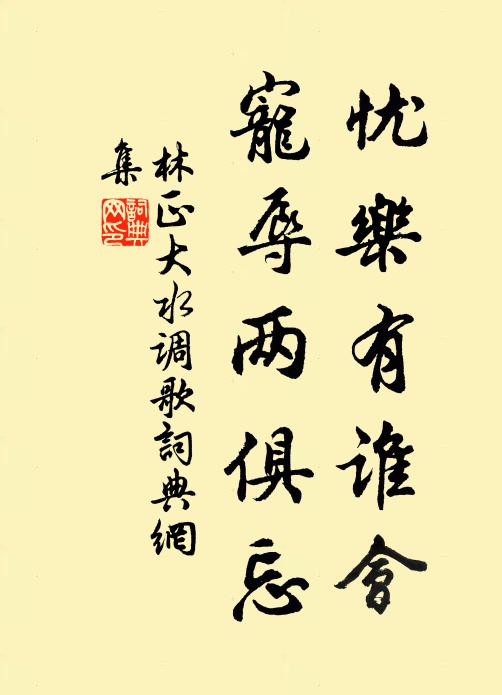 忧樂有谁會
寵辱两俱忘
林正大水调歌詞典網
集
詞典
网印